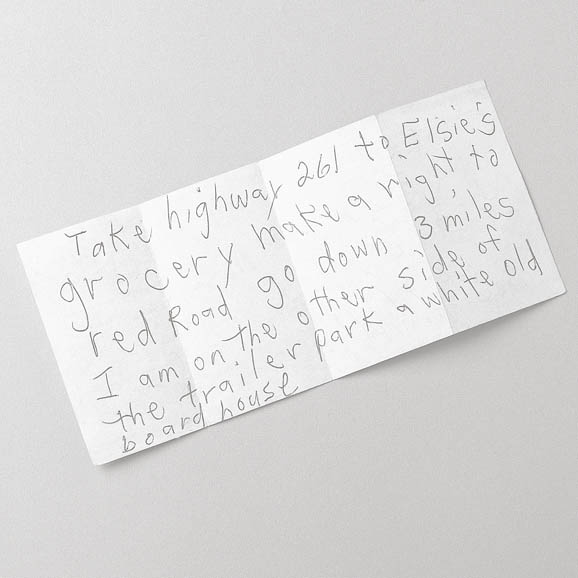 Take highway 261 to Elsie's
grocery make a right to
red Road go down 3 miles
I am on the other side of
the trailer park a white old
board house